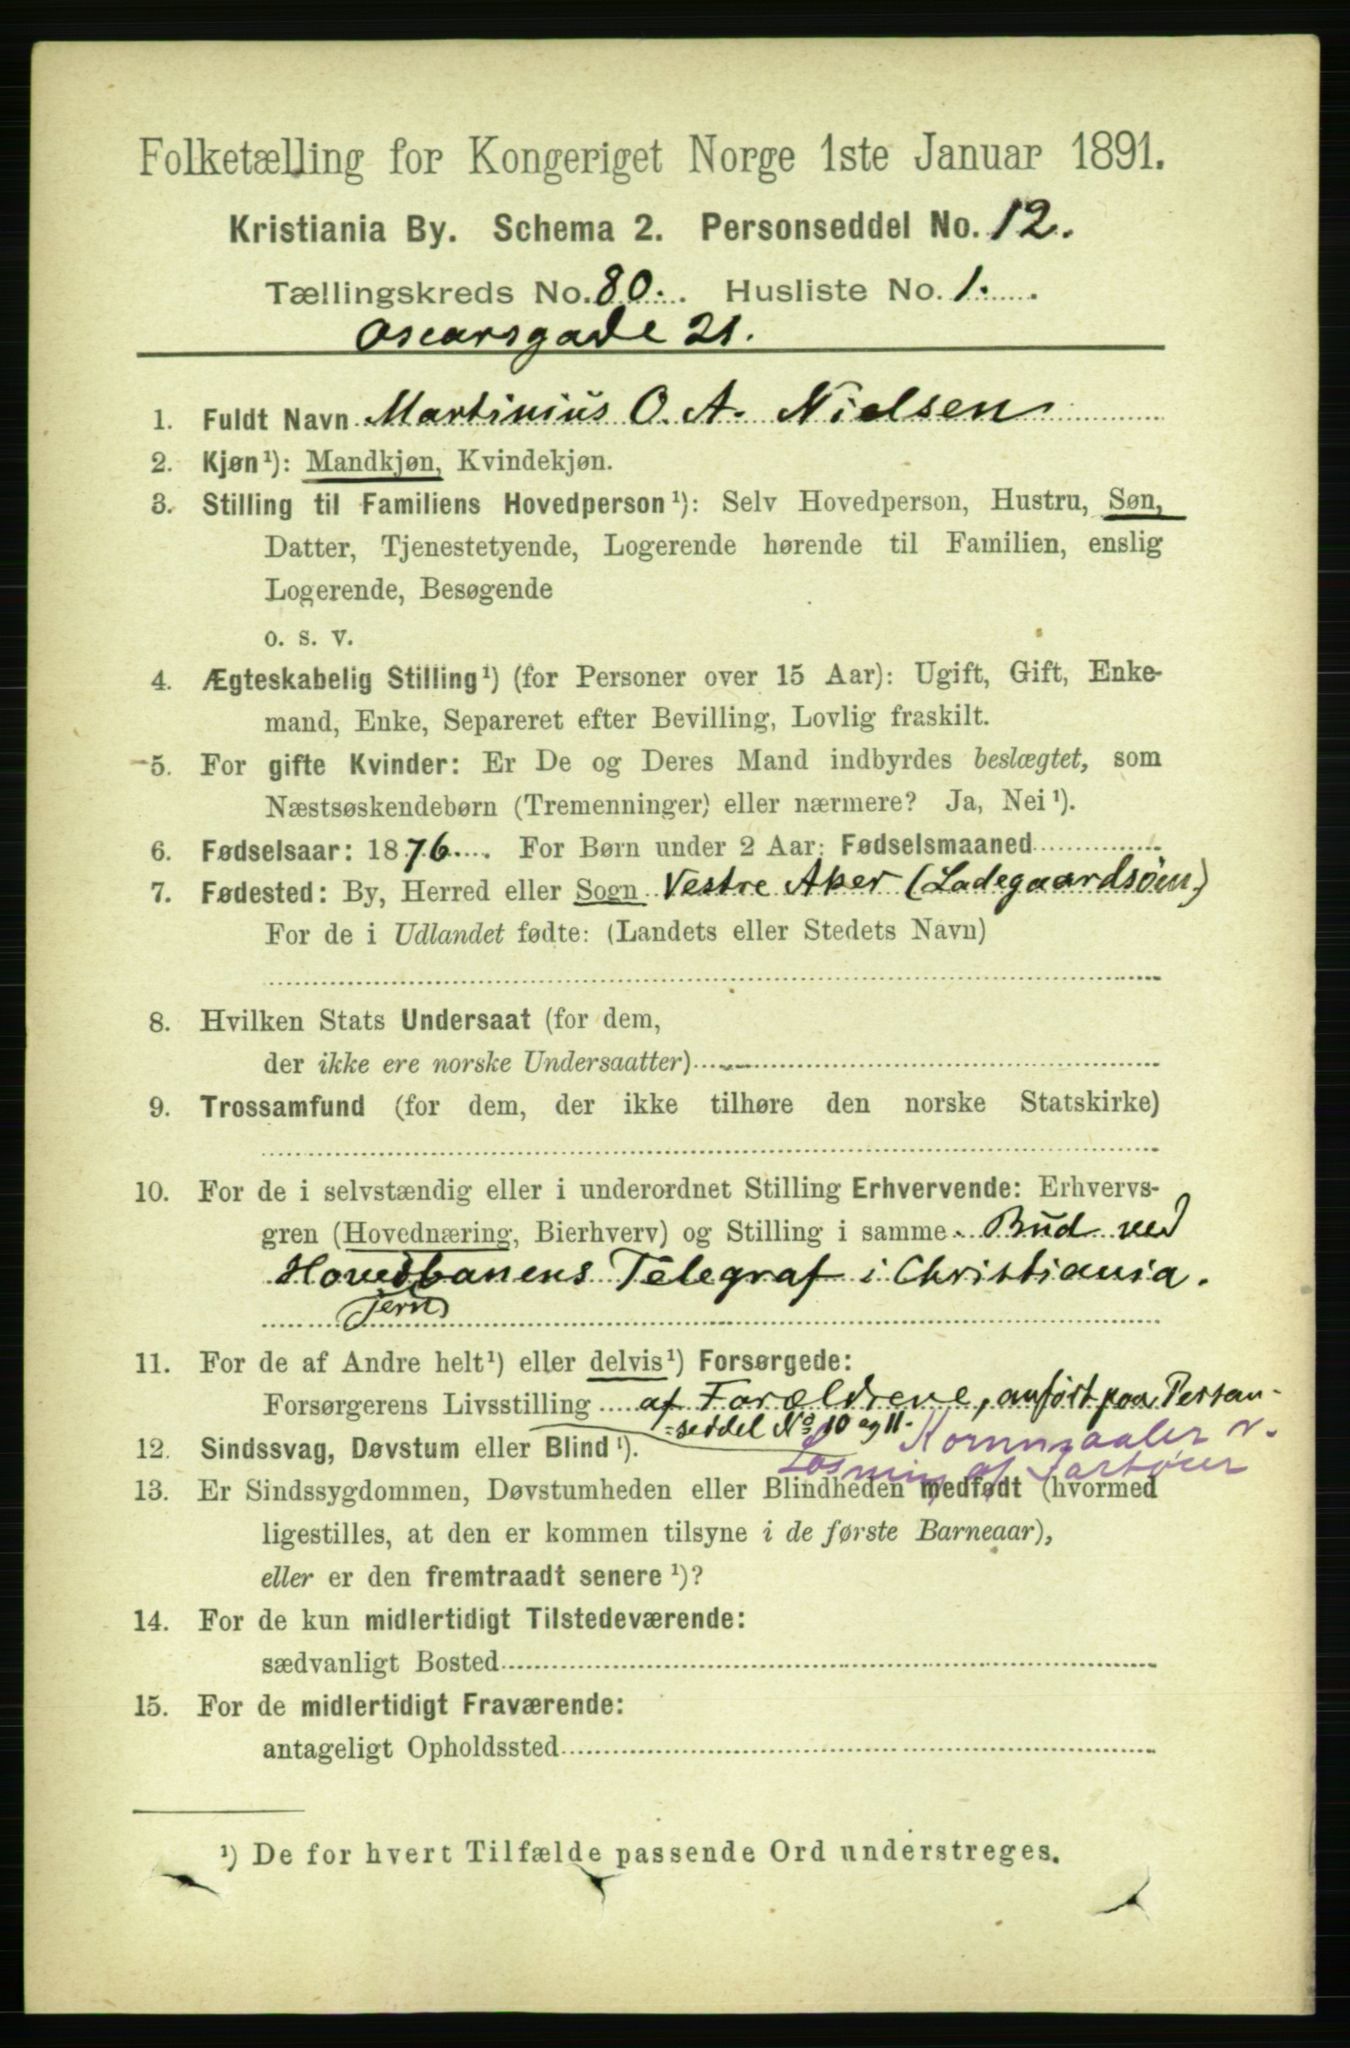 Folketælling for Kongeriget Norge 1ste Januar 1891.
Kristiania By. Schema 2. Personseddel No. 12.
Tællingskreds No. 80. Husliste No. 1.
Oscarsgade 21.
1. Fuldt Navn Martinius O. A. Nielsen
2. Kjøn ¹): Mandkjøn, Kvindekjøn.
3. Stilling til Familiens Hovedperson ¹): Selv Hovedperson, Hustru, Søn,
Datter, Tjenestetyende, Logerende hørende til Familien, enslig
Logerende, Besøgende
o. s. v.
4. Ægteskabelig Stilling ¹) (for Personer over 15 Aar): Ugift, Gift, Enke-
mand, Enke, Separeret efter Bevilling, Lovlig fraskilt.
5. For gifte Kvinder: Er De og Deres Mand indbyrdes beslægtet, som
Næstsøskendebørn (Tremenninger) eller nærmere? Ja, Nei ¹).
6. Fødselsaar: 1876. For Børn under 2 Aar: Fødselsmaaned
7. Fødested: By, Herred eller Sogn Vestre Aker (Ladegaardsøen)
For de i Udlandet fødte: (Landets eller Stedets Navn)
8. Hvilken Stats Undersaat (for dem,
der ikke ere norske Undersaatter)
9. Trossamfund (for dem, der ikke tilhøre den norske Statskirke)
10. For de i selvstændig eller i underordnet Stilling Erhvervende: Erhvervs-
gren (Hovednæring, Bierhverv) og Stilling i samme Bud ved
Hovedbanens Telegraf i Christiania.
Jern
11. For de af Andre helt ¹) eller delvis ¹) Forsørgede:
Forsørgerens Livsstilling af Forældrene, anført paa Person-
=seddel No 10 og 11.
Kornmaaler v.
12. Sindssvag, Døvstum eller Blind ¹).
Losning af Fartøier
13. Er Sindssygdommen, Døvstumheden eller Blindheden medfødt (hvormed
ligestilles, at den er kommen tilsyne i de første Barneaar),
eller er den fremtraadt senere ¹)?
14. For de kun midlertidigt Tilstedeværende:
sædvanligt Bosted
15. For de midlertidigt Fraværende:
antageligt Opholdssted
¹) De for hvert Tilfælde passende Ord understreges.